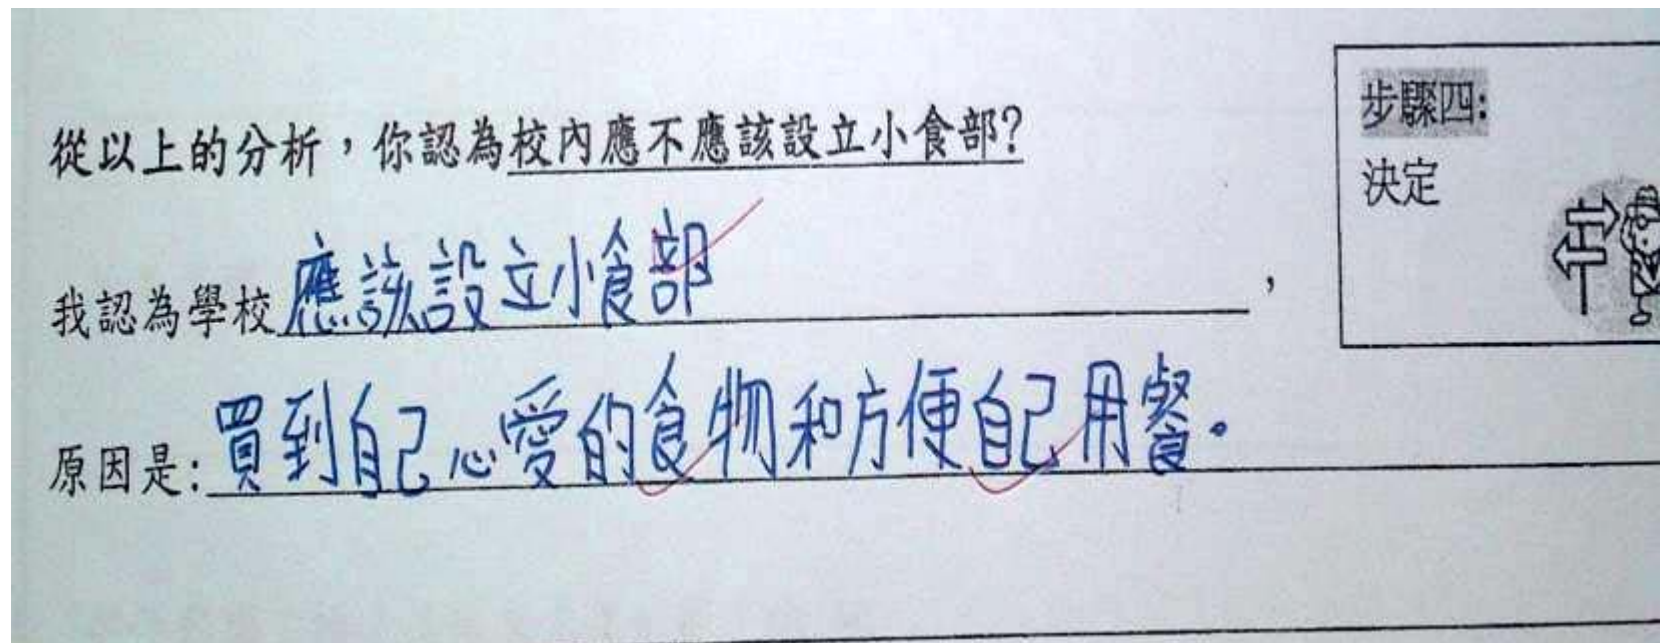 從以上的分析，你認為校內應不應該設立小食部?
步驟四:
決定
我認為學校應該設立小食部，
原因是:買到自己心愛的食物和方便自己用餐。